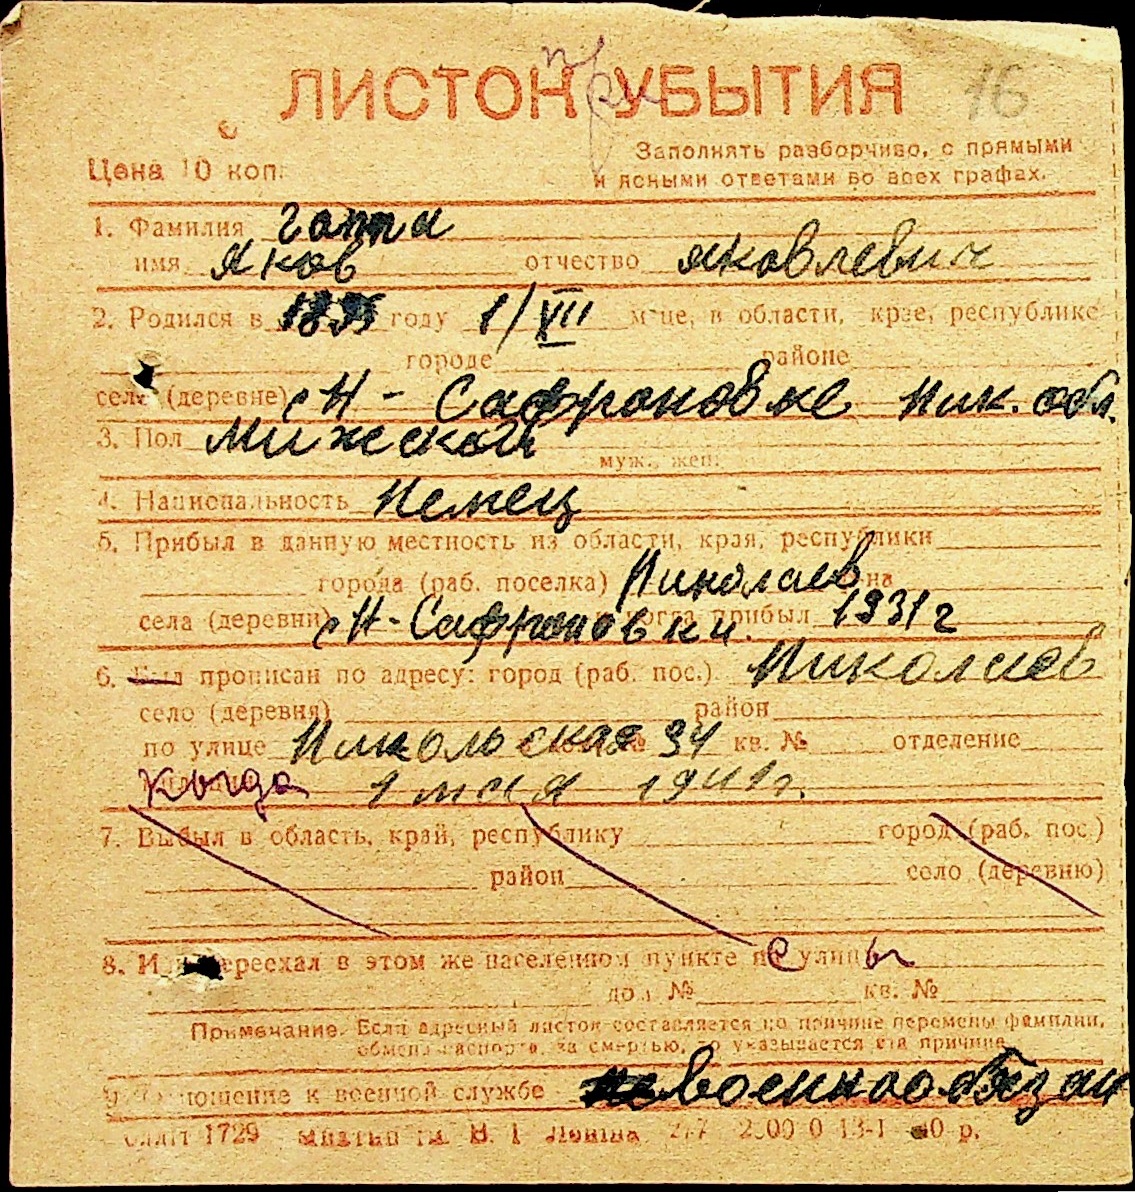 при
ЛИСТОК УБЫТИЯ 16
Цена 10 коп.
Заполнять разборчиво, с прямыми
и ясными ответами во всех графах.
1. Фамилия Гаппи
имя Яков отчество яковлевич
2. Родился в году 1/VII м-це, в области, крае, республике
городе районе
селе (деревне) с Н-Сафроновке Ник. обл.
3. Пол мижеской
муж., жен.
4. Национальность Немец
5. Прибыл в данную местность из области, края, республики
города (раб. поселка) Николаев на
села (деревни) с Н-Сафроновки. когда прибыл 1931 г
6. Был прописан по адресу: город (раб. пос.) Николаев
село (деревня) район
по улице Никольская № 34 кв. № отделение
Когда 1 мая 1941 г.
7. Выбыл в область, край, республику город (раб. пос.)
район село (деревню)
8. Или переехал в этом же населенном пункте с улицы
дом № кв. №
Примечание. Если адресный листок составляется по причине перемены фамилии,
обмена паспорта, за смертью, то указывается эта причина
9. Отношение к военной службе военнообязан
1729 В. І. Леніна